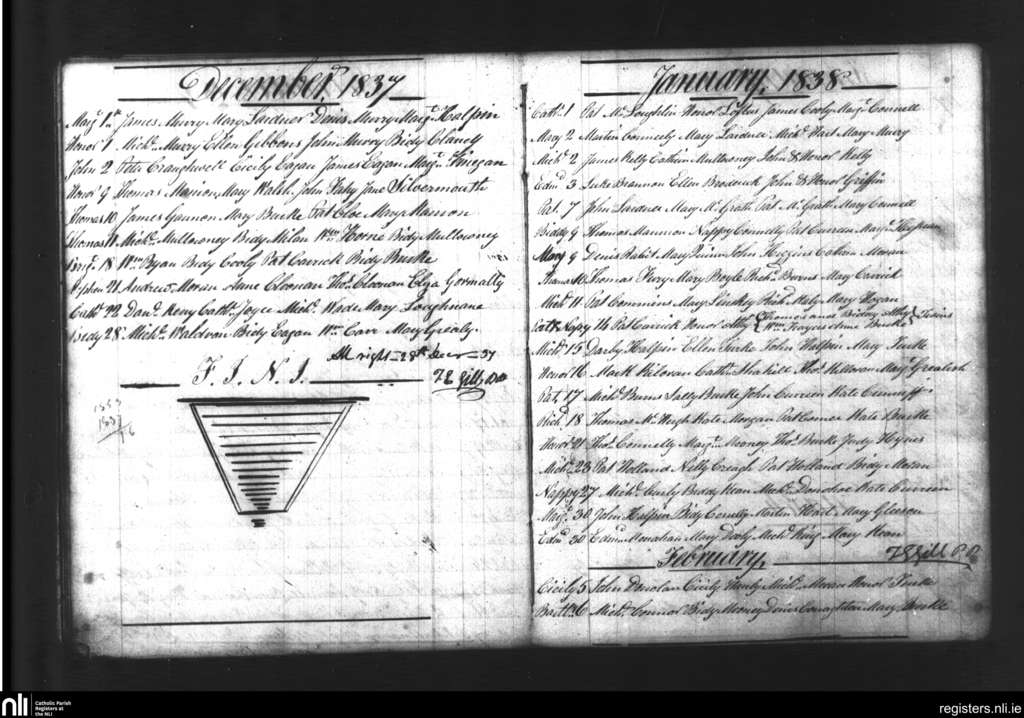 December 1837
Marg.t 1st James Murry Mary Lardner Denis Murry Marg.t Halpin
Honor 1 Mich.l Murry Ellen Gibbons John Murry Bidy Clancy
John 2 Peter Cicily Eagan James Eagan Marg.t Finegan
Honor 9 Thomas Manion Mary Walsh John Fahy Jane Silvermouth
Thomas 10 James Gannon Mary Burke Pat Cloe Mary Manion
Thomas 11 Mich.l Mullowney Bidy Milan Wm Horne Bidy Mullowney
18 Wm Ryan Bidy Cooly Pat Carrick Bidy Burke
John 21 Andrew Moran Anne Cloonan Tho.s Cloonan Eliza Gormally
Cath. 22 Dan.l Keny Cath. Joyce Mich.l Wade Mary Loughnane
Bedy 28 Mich.l Waldron Bidy Eagan Wm Carr Mary Grealy.
All right = 28th Decr = 37
F. I. N. I.
1837
16
January, 1838
Cath. 1 Pat Mc Loughlin Honor Loftus James Cooly Marg.t Connell
Mary 2 Martin Conneely Mary Lardner Mich.l Hart Mary Murry
Mich.l 2 James Kelly Cathrin Mullowney John & Honor Kelly
Edmd 3 Luke Brannon Ellen Broderick John & Honor Griffin
Pat. 7 John Lardner Mary Mc Grath Pat Mc Grath Mary Connell
Biddy 9 Thomas Mannion Nappy Connelly Pat Curreen Marg.t
Mary 9 Denis Rabit Mary Quinn John Higgins Cathrin Moran
10 Thomas Fury Mary Boyle Rich.d Burns Mary Carrick
Mich.l 11 Pat Commins Mary Rich.d Mary Hogan
Nappy 14 Pat Carrick Honor { Thomas Bidney
Wm Anne Burke } Twins
Mich.l 15 Darby Halpin Ellen Burke John Halpin Mary Burke
Honor 16 Mark Kiloran Cath. Shahill Tho.s Killoran Marg.t Grealish
Pat. 17 Mich.l Burns Sally Burke John Curreen Kate Cunniff
Rich.d 18 Thomas Mc Hugh Kate Morgan Pat Comer Kate Burke
Honor 21 Tho.s Connelly Marg.t Mooney Tho.s Burke Judy Hynes
Mich.l 23 Pat Holland Nelly Creagh Pat Holland Bidy Moran
Nappy 27 Mich.l Curly Biddy Kean Mich.l Donohoe Kate Curreen
Marg.t 30 John Halpin Bidy Martin Hart Mary Gleeson
Edmd 30 Edmd Monahan Mary Dooly Mich.l King Mary Kean
February,
Cicily 5 John Donolan Cicily Mich.l Moran Honor Burke
Bartl. 6 Mich.l Connor Bidy Mooney Denis Conaghton Mary Burke
nli
Catholic Parish
Registers at
the NLI
registers.nli.ie